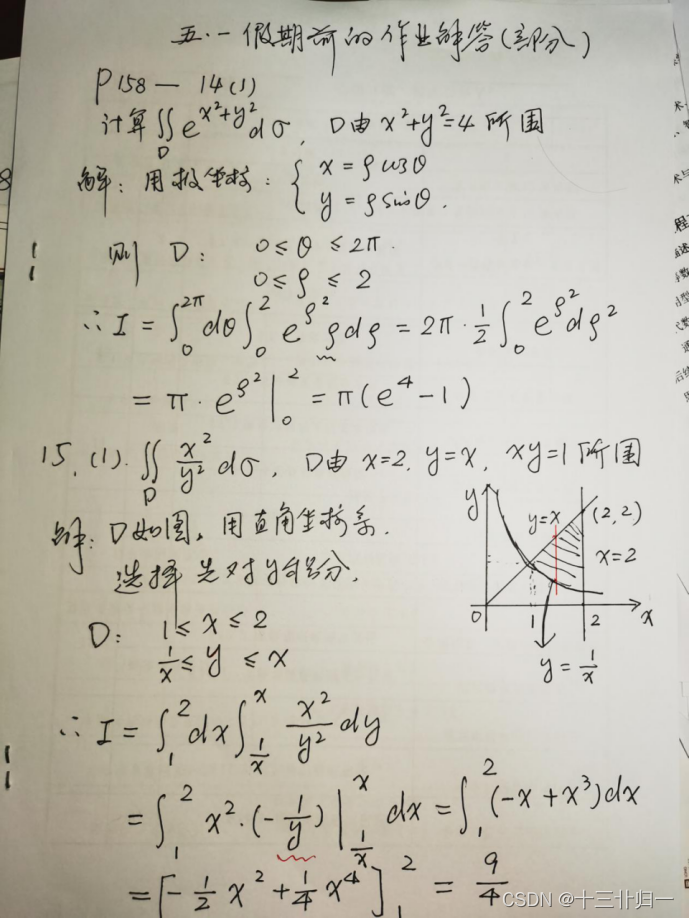 五.一假期前的作业解答(部分)
P158 — 14(1)
计算∬_D e^{x²+y²}dσ, D由x²+y²=4所围
解: 用极坐标: { x = ρcosθ
y = ρsinθ.
则 D: 0 ≤ θ ≤ 2π.
0 ≤ ρ ≤ 2
∴ I = ∫₀^{2π}dθ∫₀² e^{ρ²} ρdρ = 2π·½∫₀² e^{ρ²}dρ²
= π· e^{ρ²}|₀² = π(e⁴-1)
15. (1). ∬_D x²/y² dσ, D由 x=2, y=x, xy=1所围
解: D如图, 用直角坐标系.
选择先对y积分.
D: 1 ≤ x ≤ 2
1/x ≤ y ≤ x
y
y=x
(2,2)
x=2
0 1 2 x
y = 1/x
∴ I = ∫₁² dx ∫_{1/x}^{x} x²/y² dy
= ∫₁² x²·(-1/y)|_{1/x}^{x} dx = ∫₁² (-x + x³)dx
= [-½x² + ¼x⁴]₁² = 9/4
CSDN @十三卝归一